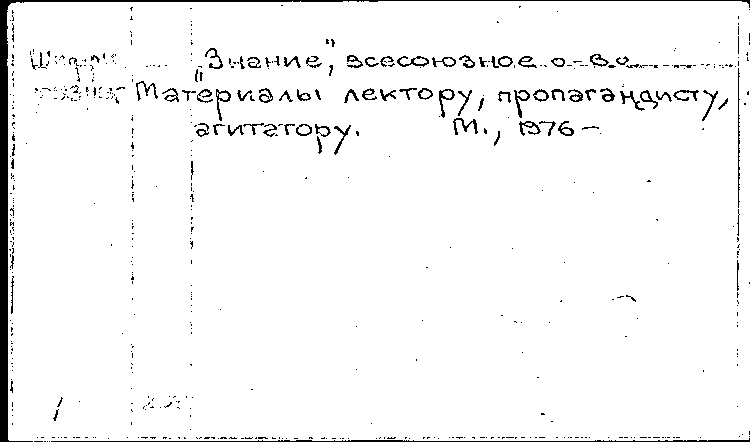 "Знание", всесоюзное о-во
Материалы лектору, пропагандисту,
агитатору. М., 1976 –